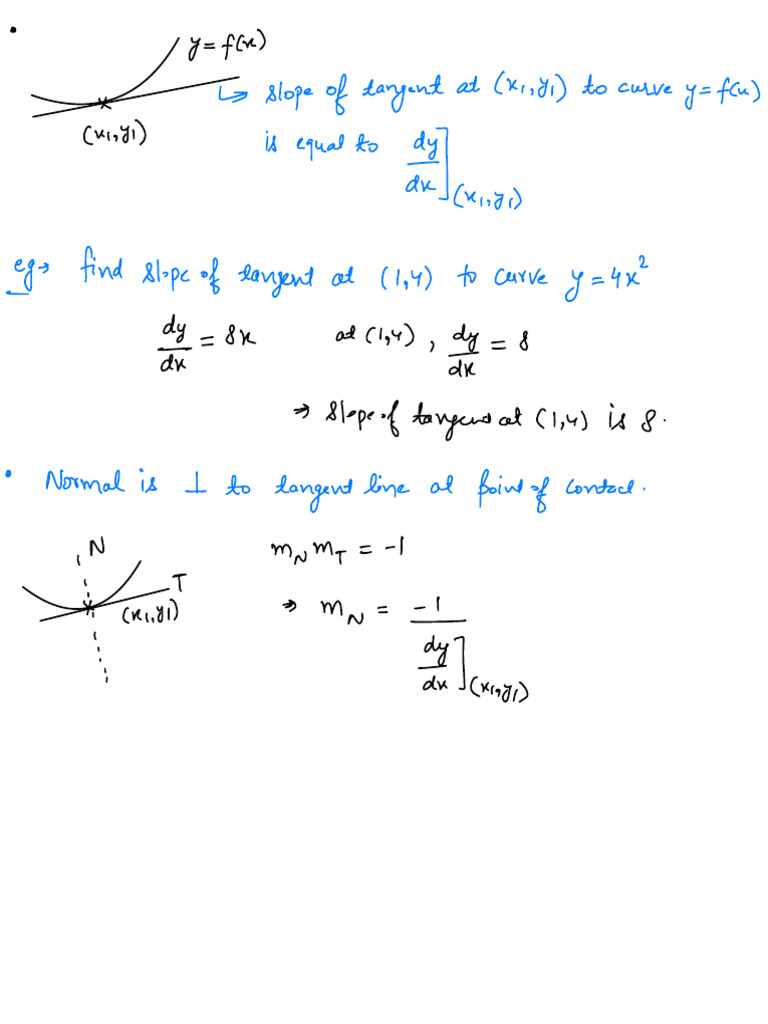 • y = f(x)
(x₁,y₁)
↳ slope of tangent at (x₁,y₁) to curve y = f(x)
is equal to dy/dx](x₁,y₁)
eg→ find slope of tangent at (1,4) to curve y = 4x²
dy/dx = 8x at (1,4), dy/dx = 8
⇒ slope of tangent at (1,4) is 8.
• Normal is ⊥ to tangent line at point of contact.
N
T
(x₁,y₁)
m_N m_T = -1
⇒ m_N = -1/(dy/dx](x₁,y₁))